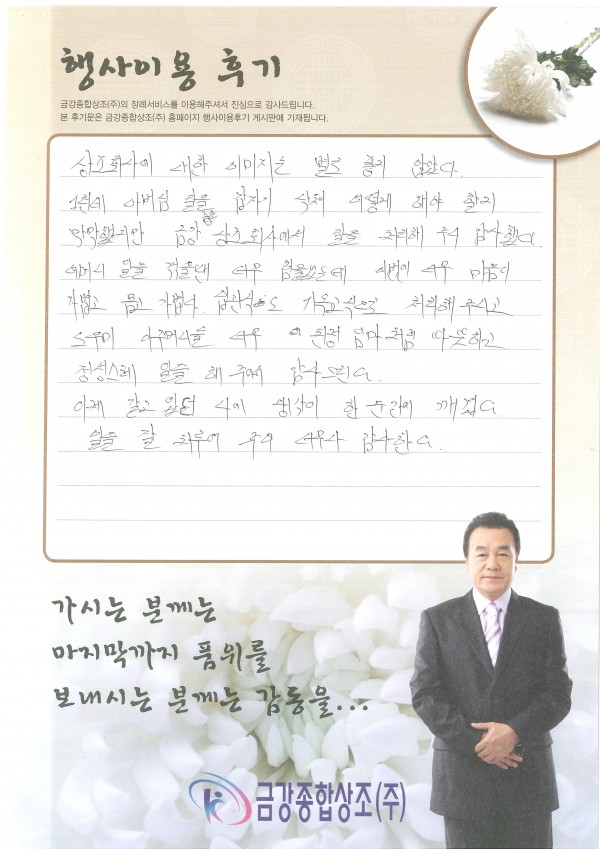 행사이용 후기
금강종합상조(주)의 장례서비스를 이용해주셔서 진심으로 감사드립니다.
본 후기문은 금강종합상조(주) 홈페이지 행사이용후기 게시판에 기재됩니다.
상조회사에 대한 이미지는 별로 좋지 않았다.
1월에 아버님 일을 갑자기 닥쳐 어떻게 해야 할지
막막했지만 금강 상조회사에서 일을 처리해 주셔 감사했다.
어머니 일을 치를땐 너무 힘들었는데 이번에 너무 마음이
가볍고 가볍다. 기독교식으로 처리해 주시고
도우미 아주머니들 너무 친정 엄마처럼 따뜻하고
정성스레 일을 해 주셔서 감사드린다.
이제 갖고 있던 나의 생각이 한 순간에 깨졌다.
일을 잘 치루어 주어 너무나 감사한다.
가시는 분께는
마지막까지 품위를
보내시는 분께는 감동을...
금강종합상조(주)